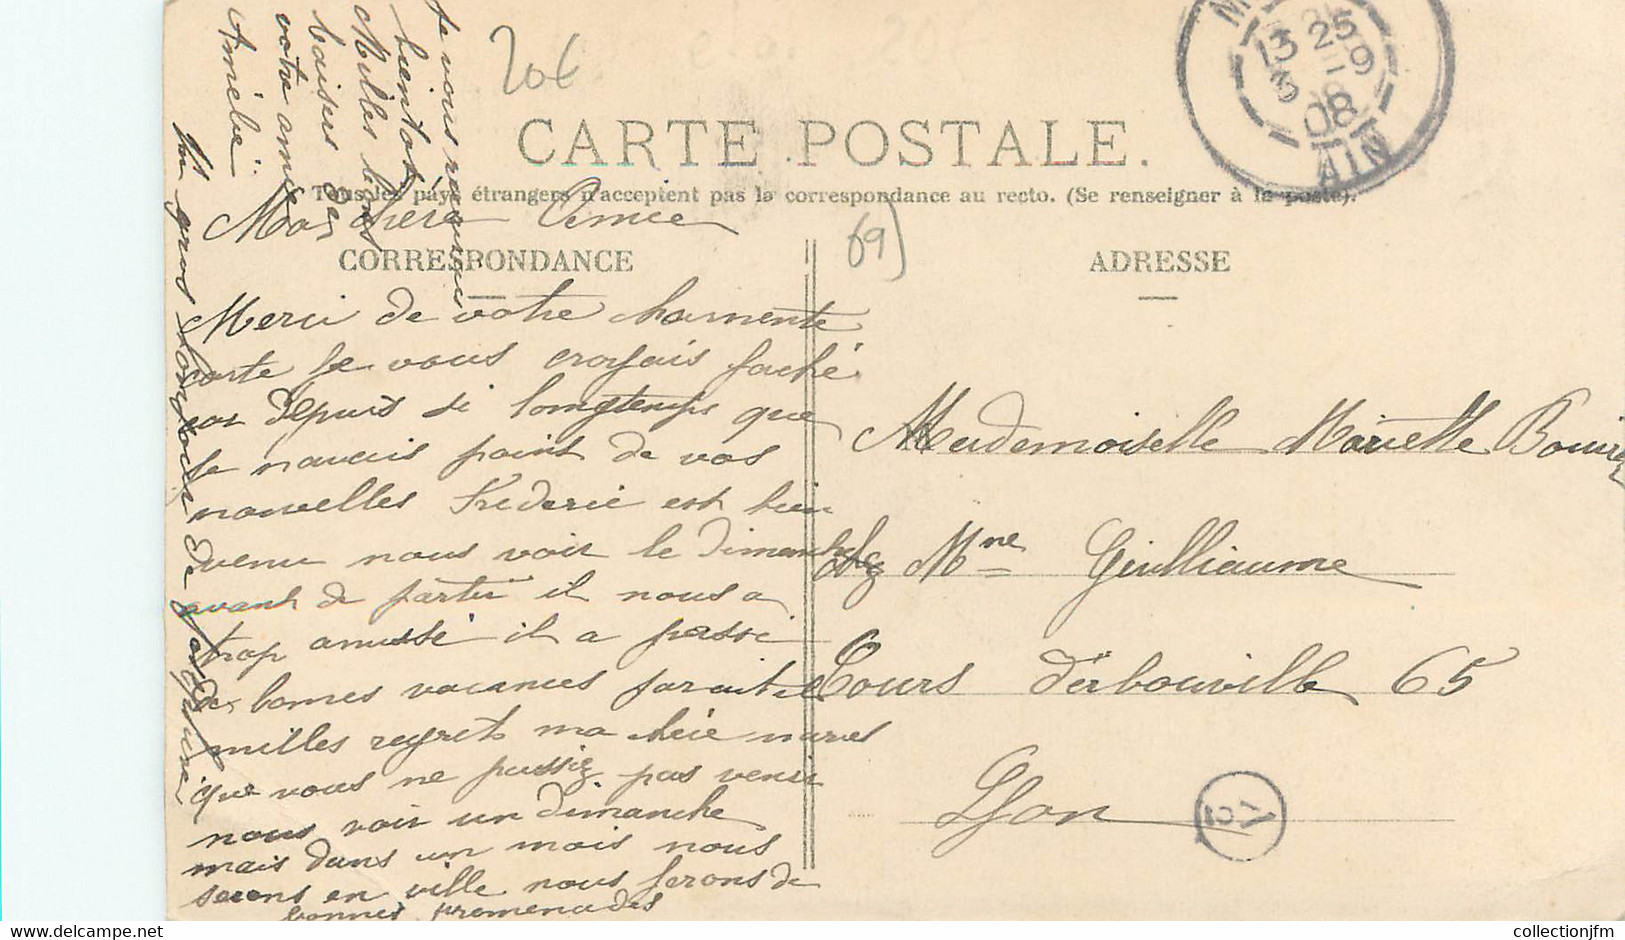 20€
CARTE POSTALE.
Tous les pays étrangers n'acceptent pas la correspondance au recto. (Se renseigner à la poste).
CORRESPONDANCE
ADRESSE
69)
13 25
3 9
08
AIN
Ma chère Aimée
Merci de votre charmente
carte je vous croyais faché
car depuis si longtemps que
je navais point de vos
nouvelles Fréderic est bien
venu nous voir le dimanche
avant de partir il nous a
trop amussé il a passé
de bonnes vacances parait il
milles regrets ma chéie
que vous ne pussiez pas venir
nous voir un dimanche
mais dans un mois nous
serons en ville nous ferons de
bonnes promenades
Je vous
bientot
Milles bons
baisers de
votre amie
Amélie
Un gros bonjour de
Mademoiselle Mariette
chez Mme Guilliaume
Cours d'erbouville 65
Lyon